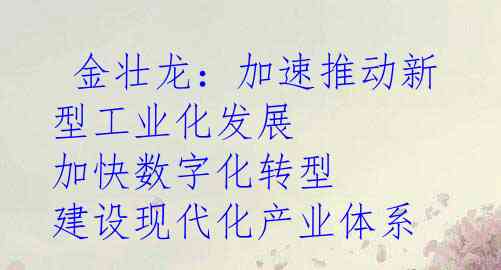 金壮龙：加速推动新
型工业化发展
加快数字化转型
建设现代化产业体系